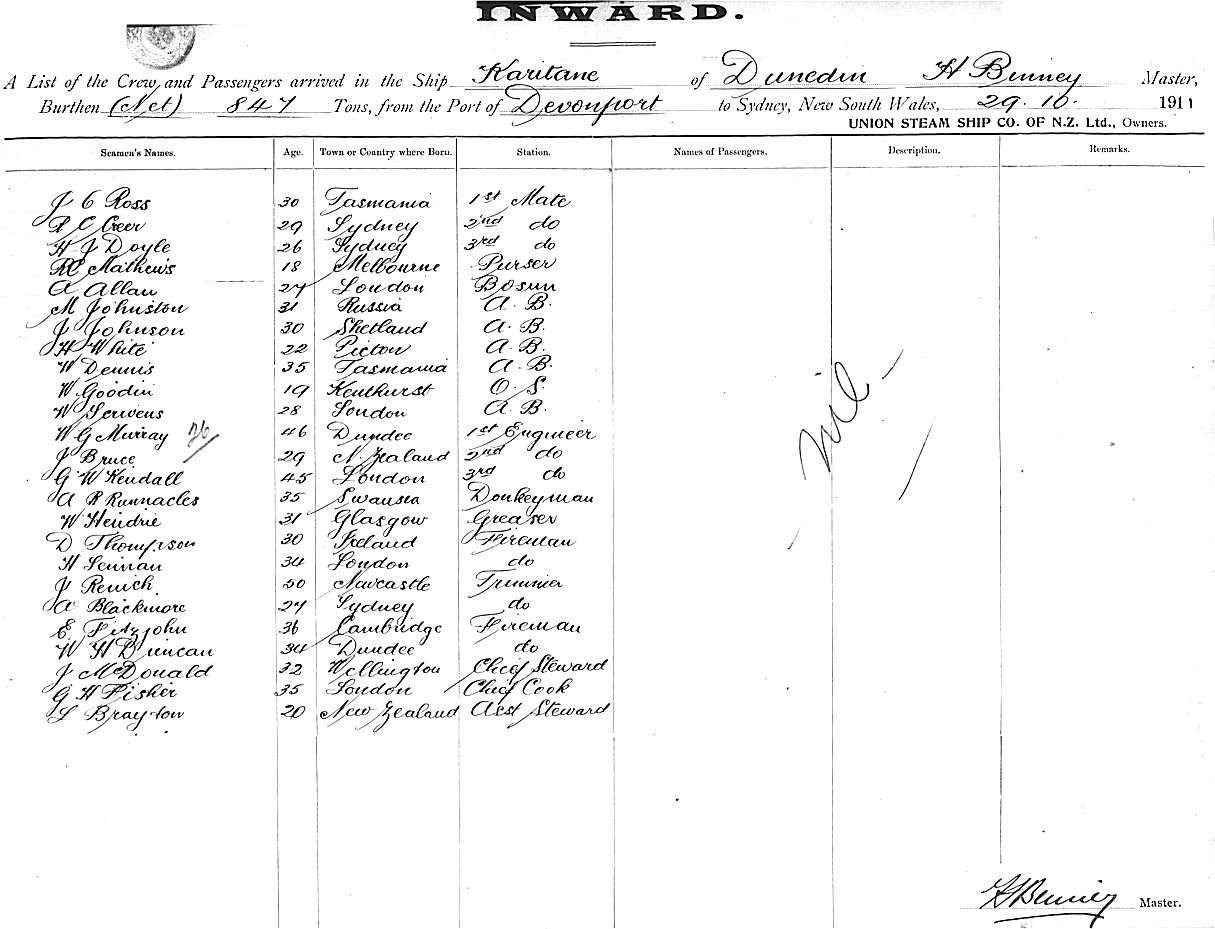 INWARD.
A List of the Crew and Passengers arrived in the Ship Karitane of Dunedin H Binney Master,
Burthen (Net) 847 Tons, from the Port of Devonport to Sydney, New South Wales, 29.10. 1911
UNION STEAM SHIP CO. OF N.Z. Ltd., Owners.
Seamen's Names. Age. Town or Country where Born. Station. Names of Passengers. Description. Remarks.
J C Ross 30 Tasmania 1st Mate
R C Creer 29 Sydney 2nd do
H J Doyle 26 Sydney 3rd do
Mathews 18 Melbourne Purser
A Allan 27 London Bosun
M Johnston 31 Russia A.B.
J Johnson 30 Shetland A.B.
H White 22 Picton A.B.
W Dennis 35 Tasmania A.B.
W Goodin 19 Kenthurst O.S.
W Scrivens 28 London A.B.
W G Murray 46 Dundee 1st Engineer
J Bruce 29 N. Zealand 2nd do
G W Kendall 45 London 3rd do
A R Runnacles 35 Swansea Donkeyman
W Hendrie 31 Glasgow Greaser
D Thompson 30 Ireland Fireman
H Lennan 34 London do
J Renich 50 Newcastle Trimmer
A Blackmore 27 Sydney do
E Fitzjohn 36 Cambridge Fireman
W H Duncan 34 Dundee do
J McDonald 32 Wellington Chief Steward
G H Fisher 35 London Chief Cook
L Brayton 20 New Zealand Asst Steward
nil
H Binney Master.